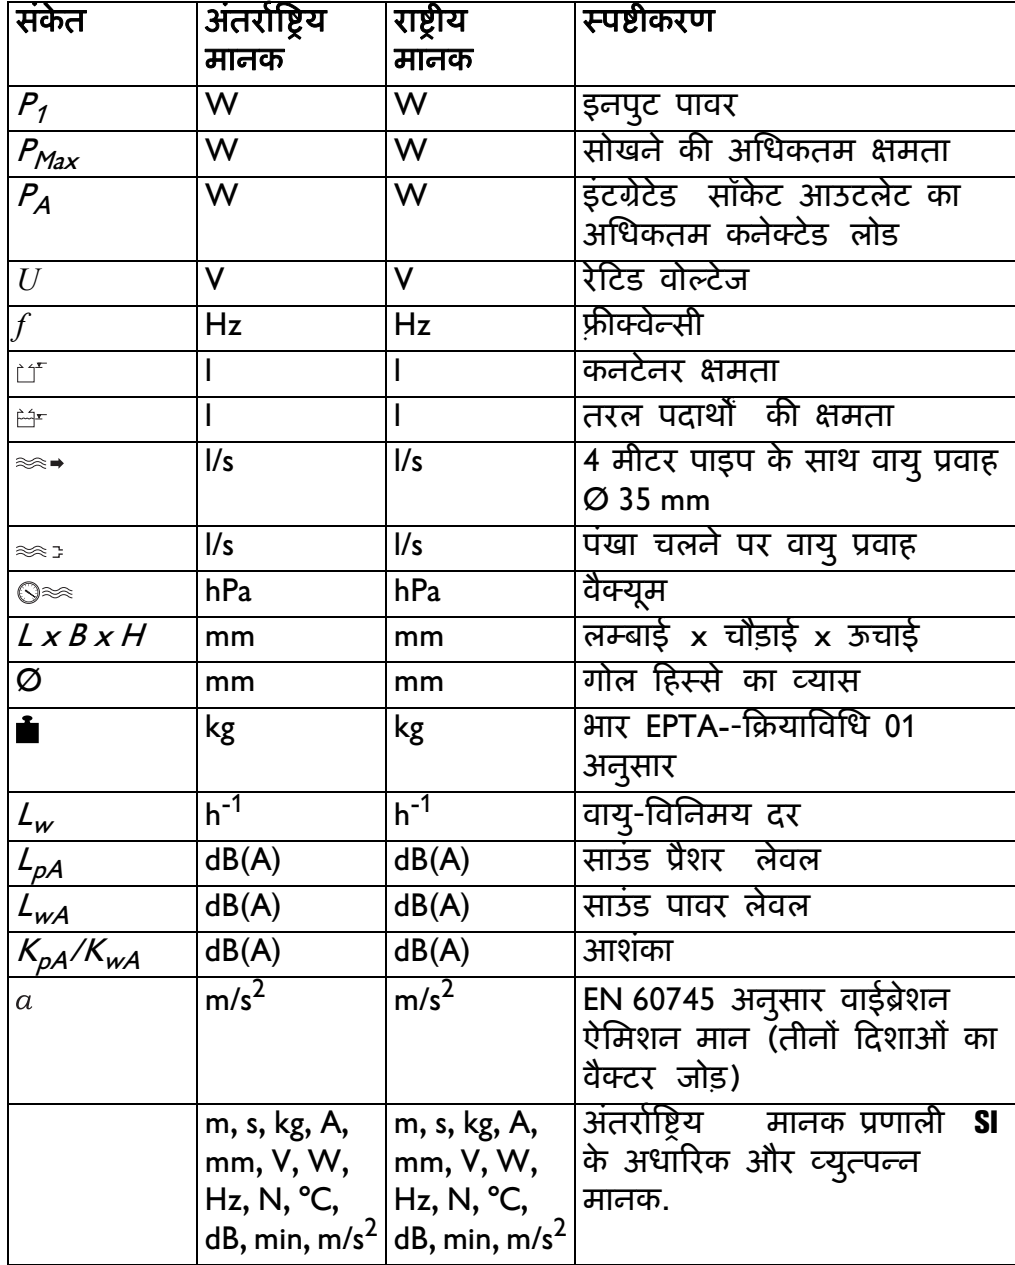 संकेत अंतर्राष्ट्रिय राष्ट्रीय स्पष्टीकरण
मानक मानक
P1 W W इनपुट पावर
PMax W W सोखने की अधिकतम क्षमता
PA W W इंटग्रेटेड सॉकेट आउटलेट का
अधिकतम कनेक्टेड लोड
U V V रेटिड वोल्टेज
f Hz Hz फ़्रीक्वेन्सी
l l कनटेनर क्षमता
l l तरल पदार्थों की क्षमता
l/s l/s 4 मीटर पाइप के साथ वायु प्रवाह
Ø 35 mm
l/s l/s पंखा चलने पर वायु प्रवाह
hPa hPa वैक्यूम
L x B x H mm mm लम्बाई x चौड़ाई x ऊचाई
Ø mm mm गोल हिस्से का व्यास
kg kg भार EPTA--क्रियाविधि 01
अनुसार
Lw h-1 h-1 वायु-विनिमय दर
LpA dB(A) dB(A) साउंड प्रैशर लेवल
LwA dB(A) dB(A) साउंड पावर लेवल
KpA/KwA dB(A) dB(A) आशंका
a m/s2 m/s2 EN 60745 अनुसार वाईब्रेशन
ऐमिशन मान (तीनों दिशाओं का
वैक्टर जोड़)
m, s, kg, A, m, s, kg, A, अंतर्राष्ट्रिय मानक प्रणाली SI
mm, V, W, mm, V, W, के अधारिक और व्युत्पन्न
Hz, N, °C, Hz, N, °C, मानक.
dB, min, m/s2 dB, min, m/s2